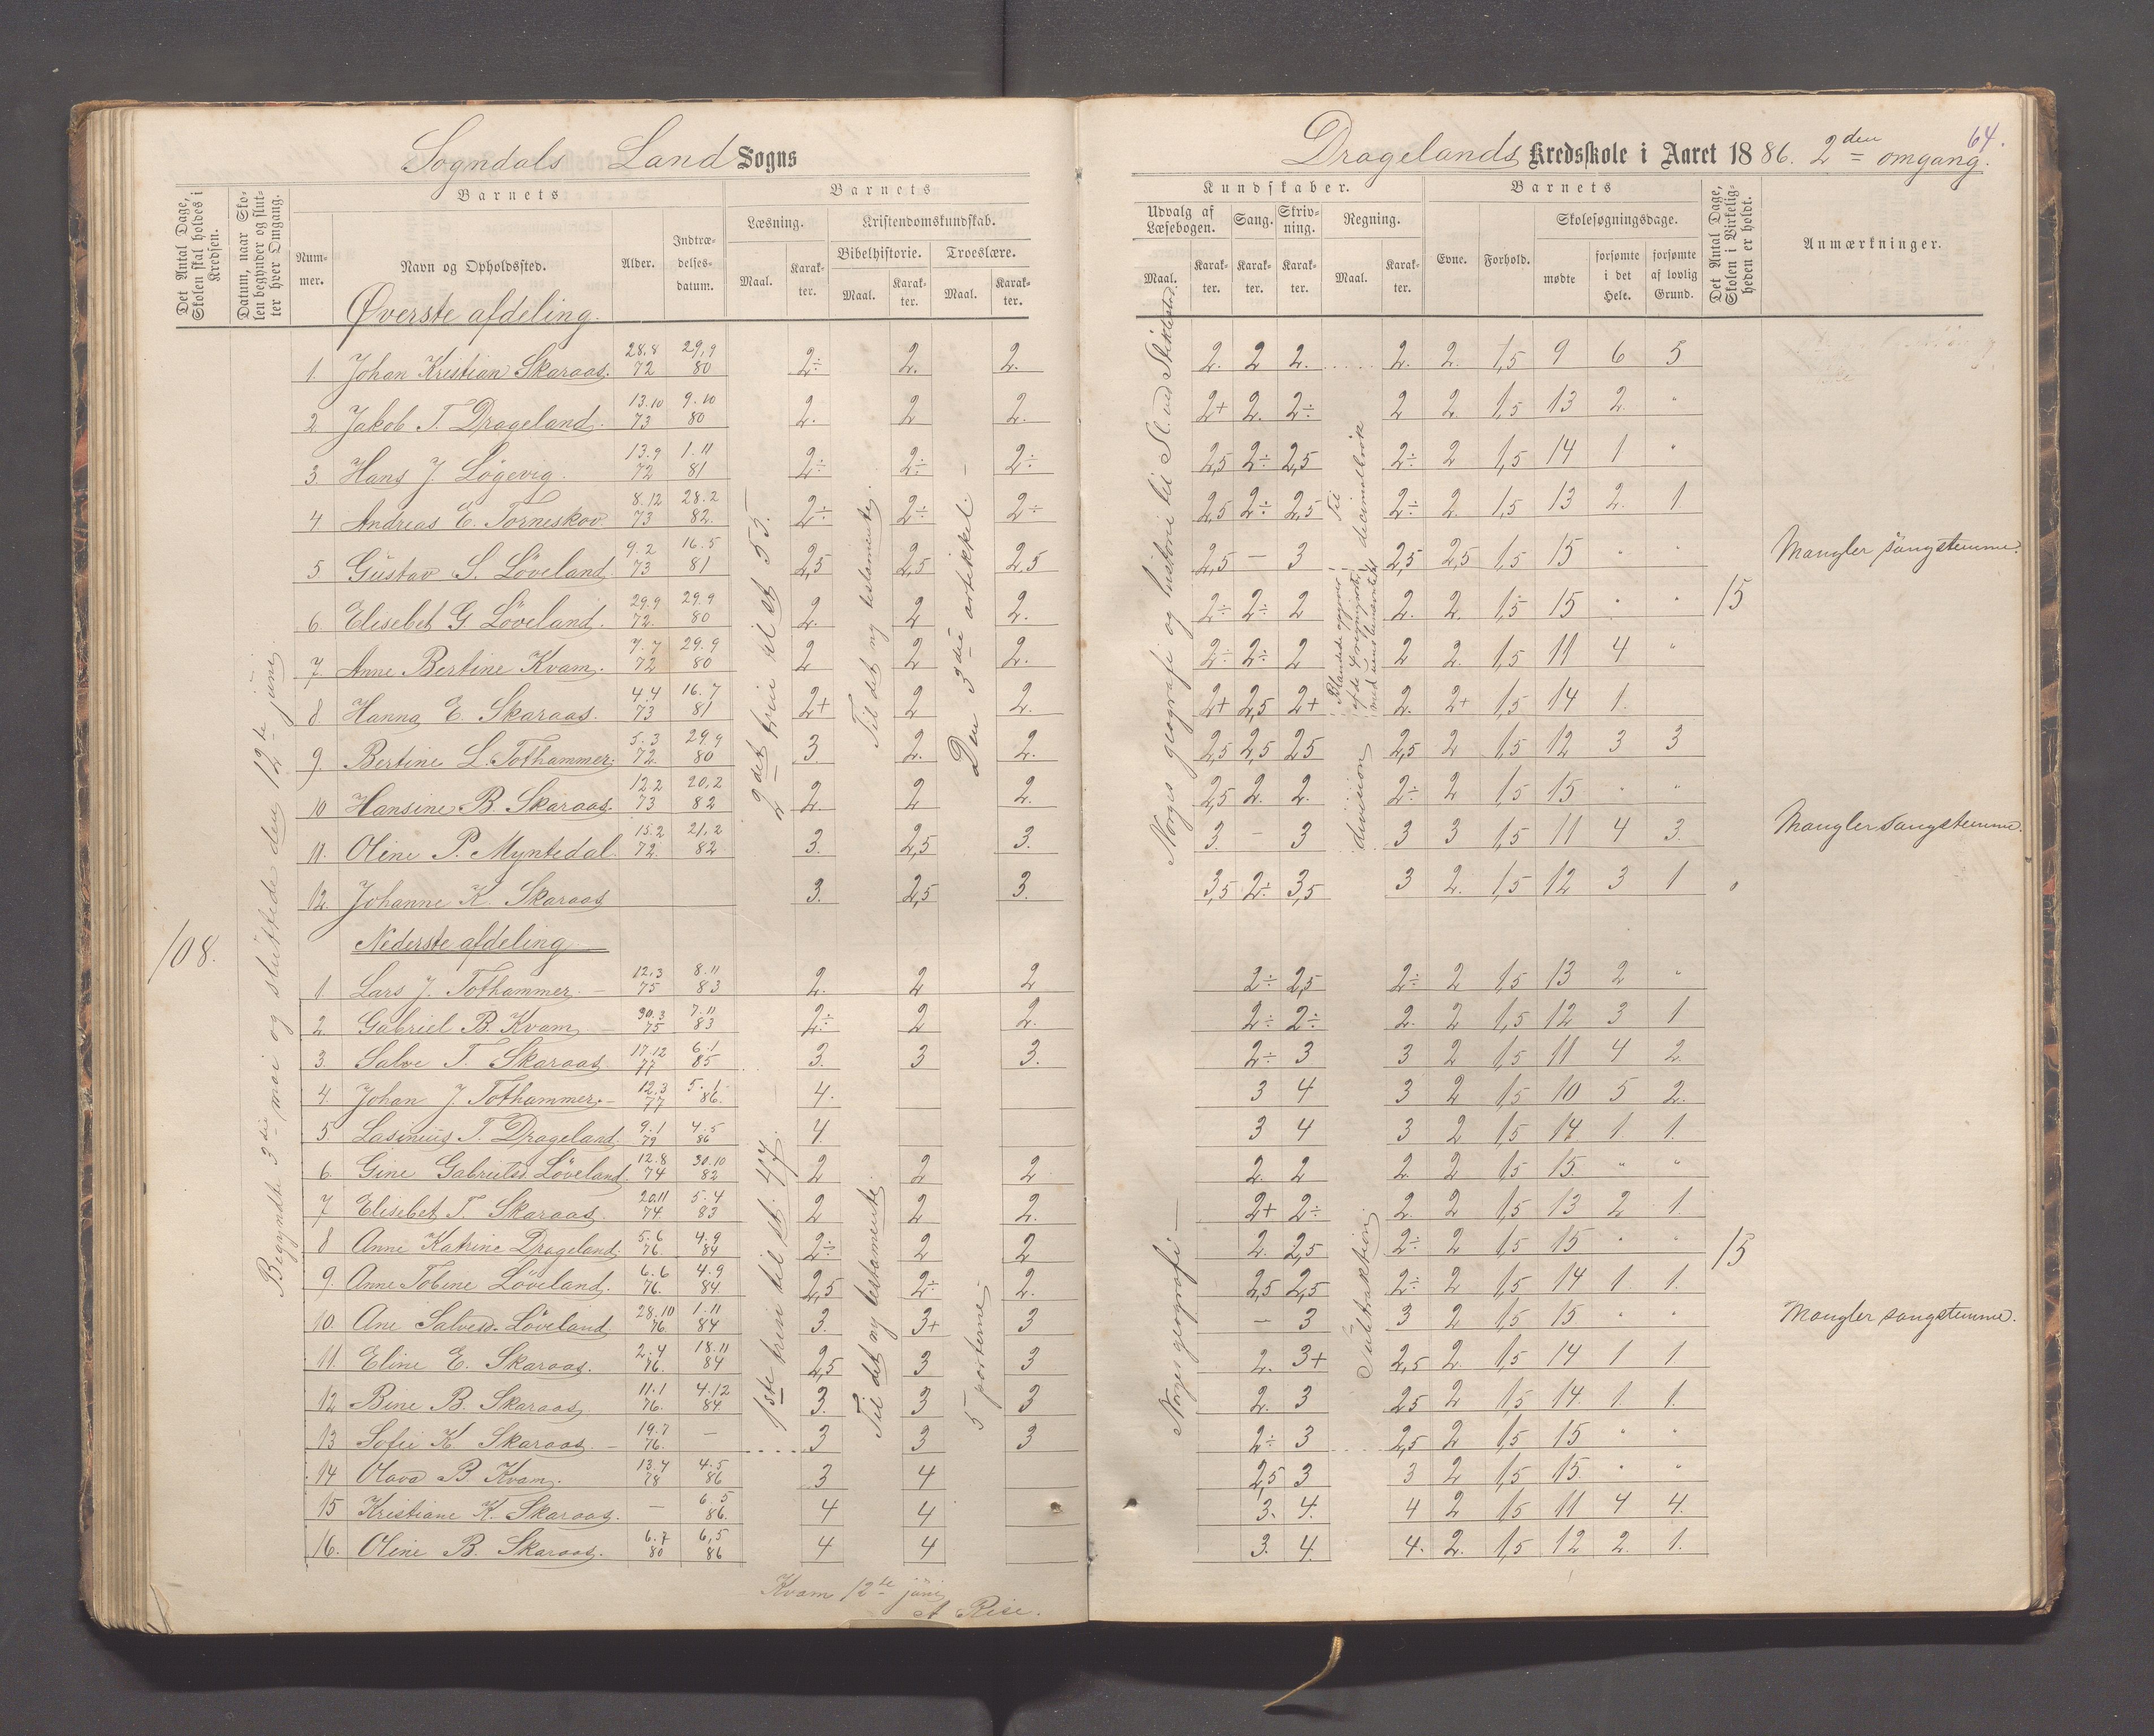 Sogndals Land Sogns
Det Antal Dage, Skolen skal holdes i Kredsen.
Datum, naar Skolen begynder og slutter hver Omgang.
Barnets
Nummer.
Navn og Opholdssted.
Alder.
Indtrædelsesdatum.
Barnets
Læsning.
Kristendomskundskab.
Bibelhistorie.
Troeslære.
Maal. Karakter. Maal. Karakter. Maal. Karakter.
Øverste afdeling.
1. Johan Kristian Skaraas. 28.8 72 29,9 80 2÷ 2. 2.
2. Jakob T. Drageland. 13.10 73 9.10 80 2. 2 2.
3. Hans J. Løgevig. 13.9 72 1.11 81 2÷ 2÷ 2÷
4 Andreas E. Torneskov 8.12 73 28.2 82. 2÷ 2÷ 2÷
5 Gustav S. Löveland 9.2 73 16.5 81 2,5 2,5 2,5
6. Elisebet G. Löveland. 29.9 72. 29.9 80 2. 2 2.
7. Anne Bertine Kvam. 7.7 72 29.9 80 2 2 2.
8 Hanna E. Skaraas. 4.4 73 16.7 81 2+ 2 2.
9. Bertine L. Tothammer. 5.3 72 29.9 80 3. 2. 2.
10 Hansine B. Skaraas. 12.2 73 20,2 82 2 2 2.
11. Oline P. Myntedal. 15.2 72. 21,2 82 3. 2,5 3.
12. Johanne K. Skaraas 3. 2,5 3.
108.
Begyndte 3die mai og sluttede den 12te juni.
2det trin til st 55.
Til det ny testamente.
Den 3die artikkel.
Nederste afdeling
1. Lars J. Tothammer. 12.3 75 8.11 83 2. 2 2
2. Gabriel B. Kvam 30.3 75 7.11 83 2÷ 2 2.
3. Salve T. Skaraas. 17.12 77 6.1 85 3. 3 3.
4. Johan J. Tothammer. 12.3 77 5.1 86. 4.
5. Lasinius T. Drageland. 9.1 79 4.5 86 4.
6. Gine Gabrielsd. Löveland. 12.8 74 30.10 82 2 2 2
7 Elisebet T. Skaraas. 20.11 74 5.4 83 2 2 2.
8 Anne Katrine Drageland. 5.6 76. 4.9 84 2÷ 2 2
9. Anne Tobine Löveland. 6.6 76. 4.9 84. 2,5 2÷ 2.
10. Ane Salvesd. Löveland 28.10 76. 1.11 84 3. 3+ 3
11. Eline E. Skaraas. 2.4 76. 18.11 84 2,5 3 3
12 Bine B. Skaraas 11.1 76. 4.12 84. 3. 3 3
13 Sofie K Skaraas. 19.7 76. — 3 3 3
14 Olava B. Kvam. 13.4 78 4.5 86 3 4
15 Kristiane K. Skaraas. — 6.5 86. 4 4
16. Oline B. Skaraas. 6.7 80 6,5 86 4 4
1ste trin til st. 47.
Til det ny testamente.
5 parterne.
Kvam 12te juni
A Rise.
Dragelands Kredsskole i Aaret 1886. 2den omgang.
64.
Kundskaber.
Udvalg af Læsebogen.
Sang.
Skrivning.
Regning.
Maal. Karakter. Karakter. Karakter. Maal. Karakter.
Barnets
Evne.
Forhold.
Skolesøgningsdage.
mødte
forsømte i det Hele.
forsømte af lovlig Grund.
Det Antal Dage, Skolen i Virkeligheden er holdt.
Anmærkninger.
2. 2 2. 2. 2. 1,5 9 6 5
2+ 2. 2÷ 2 2. 1,5 13 2. "
2,5 2÷ 2,5 2÷ 2 1,5 14 1 "
2,5 2÷ 2,5 2÷ 2. 1,5 13 2. 1.
2,5 — 3 2,5 2,5 1,5 15 " " Mangler sangstemme.
2÷ 2÷ 2 2. 2. 1,5 15 " "
15
2÷ 2÷ 2 2 2. 1,5 11 4 "
2+ 2,5 2+ 2. 2+ 1,5 14 1.
2,5 2,5 2,5 2,5 2 1,5 12 3 3
2,5 2. 2. 2÷ 2 1,5 15 " "
3. — 3 3 3 1,5 11 4 3. Mangler sangstemme.
3,5 2÷ 3,5 3 2. 1,5 12 3 1
Norges geografi og historie til Sl. ved Stiklestad.
Til decimalbrøk
Blandede opgaver af de 4 regningsarter
division
2÷ 2,5 2÷ 2 1,5 13 2 "
2÷ 2÷ 2. 2 1,5 12 3 1
2÷ 3 3 2 1,5 11 4 2.
3 4 3 2 1,5 10 5 2.
3 4 3 2 1,5 14 1 1.
2. 2 2. 2 1,5 15. " "
2+ 2÷ 2. 2 1,5 13 2 1.
2. 2,5 2÷ 2 1,5 15 " "
15
2,5 2,5 2÷ 2 1,5 14 1 1.
— 3 3 2 1,5 15 " " Mangler sangstemme.
2. 3+ 2,5 2. 1,5 14 1 1
2. 3 2,5 2 1,5 14. 1. 1.
2÷ 3 2,5 2 1,5 15 " "
2,5 3 3 2 1,5 15 " "
3. 4. 4 2 1,5 11 4 4.
3. 4. 4. 2. 1,5 12 2. 1.
Norges geografi —
Subtraktion.